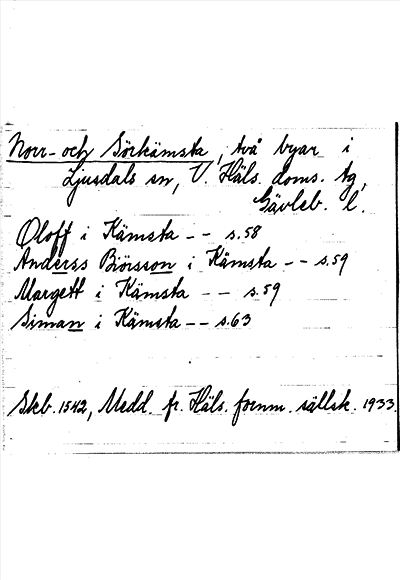 Norr- och Sörkämsta, två byar i
Ljusdals sn, V. Häls. doms. tg,
Gävleb. l.
Oloff i Kämsta -- s.58
Anderss Biörsson i Kämsta -- s.59
Margett i Kämsta -- s.59
Siman i Kämsta -- s.63
Skb. 1542, Medd. fr. Häls. fornm. sällsk. 1933.